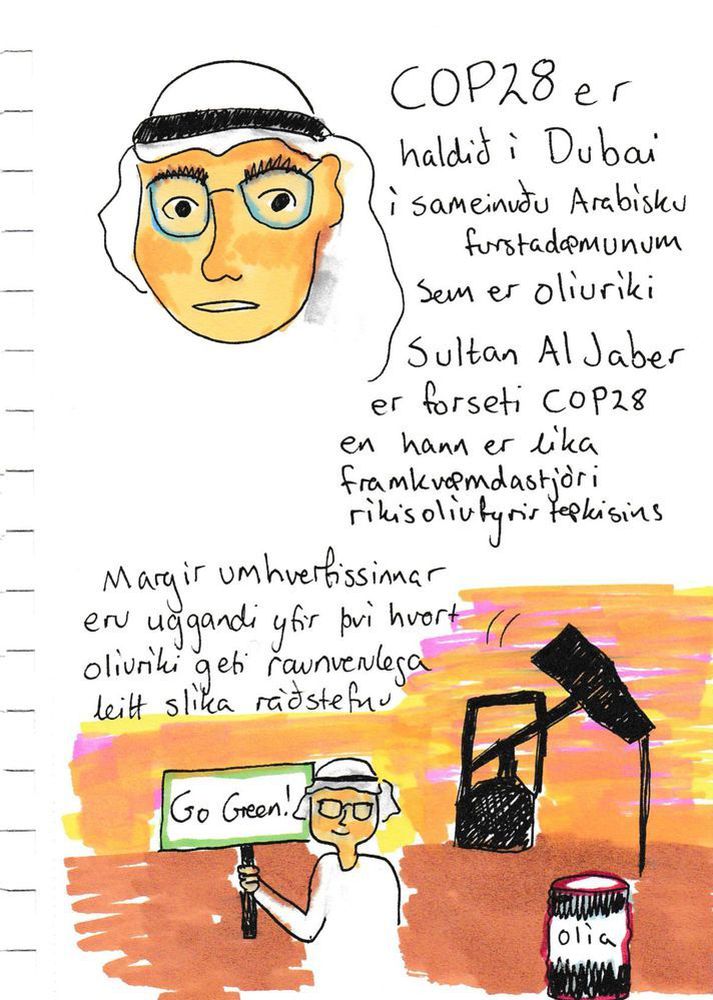 COP28 er
haldið i Dubai
i sameinuðu Arabisku
furstadæmunum
sem er oliuriki
Sultan Al Jaber
er forseti COP28
en hann er lika
framkvæmdastjóri
rikisoliufyrirtækisins
Margir umhverfissinnar
eru uggandi yfir þvi hvort
oliuriki geti raunverulega
leitt slika ráðstefnu
Go Green!
olia